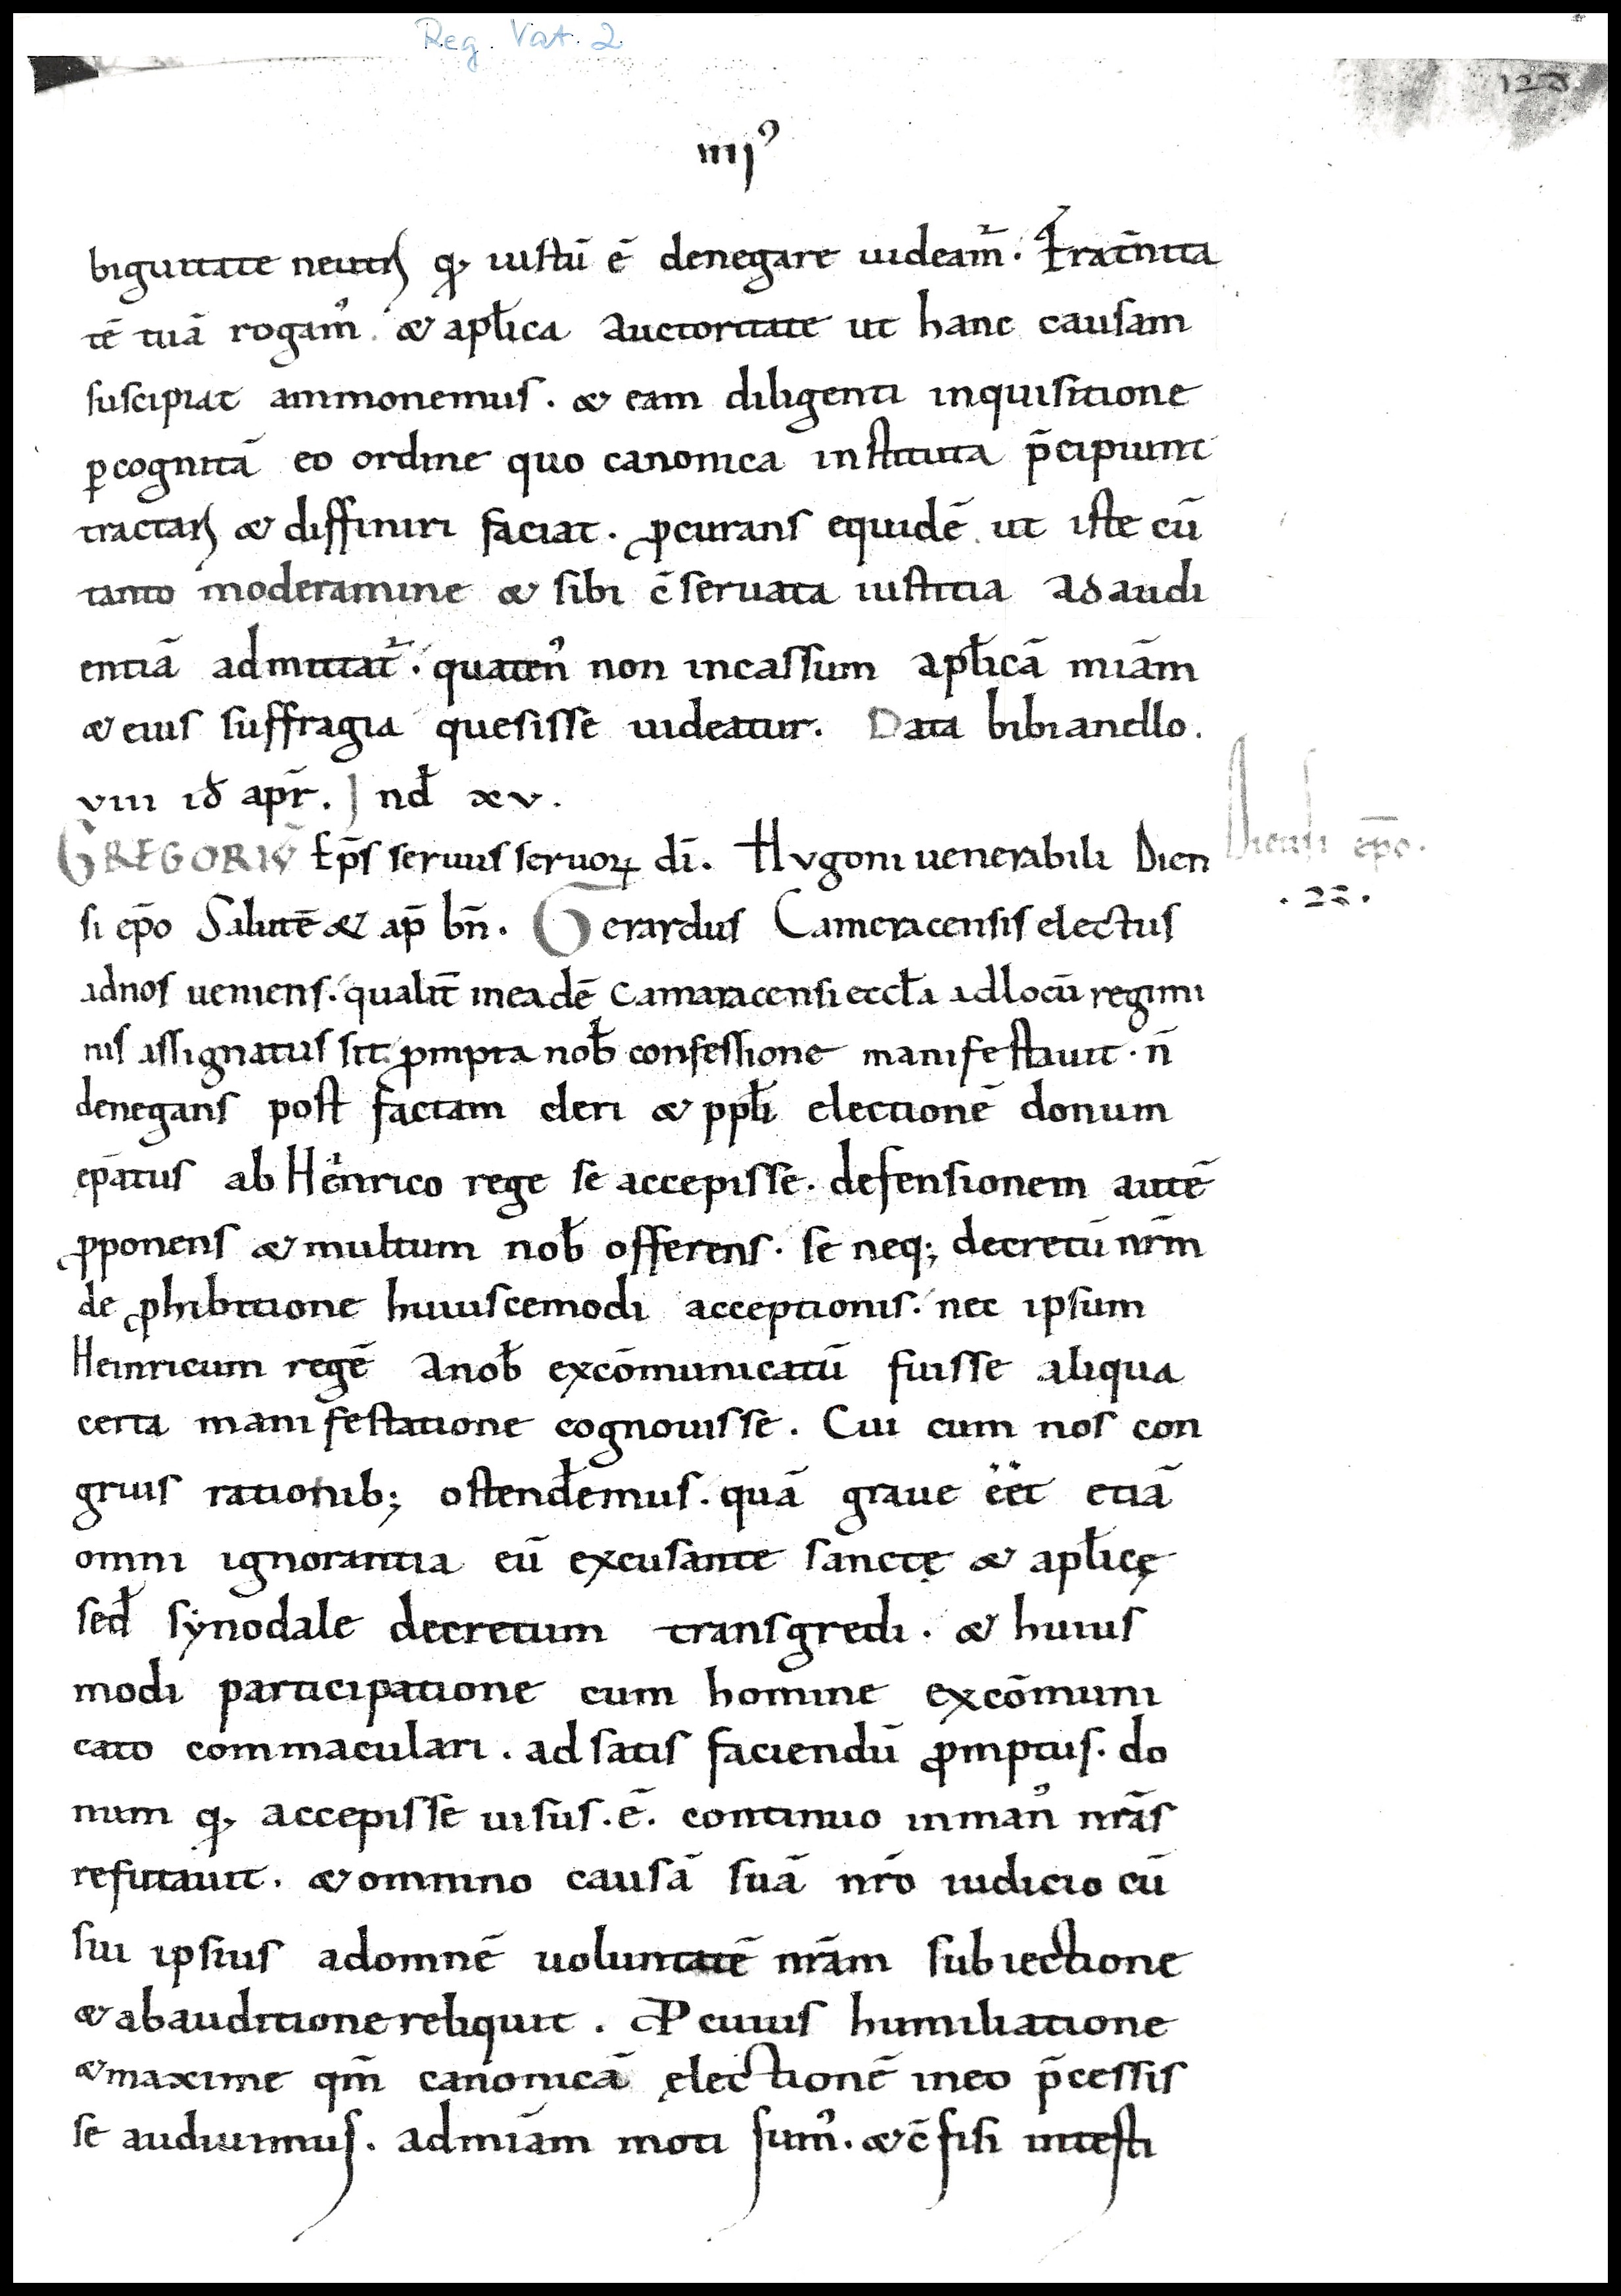 Reg. Vat. 2
123
iiij⁹
biguitate neutri ꝙ iustū ē denegare uideam̄. Frat̄nita
tē tuā rogam⁹. & apl̄ica auctoritate ut hanc causam
suscipiat ammonemus. & eam diligenti inquisitione
ꝑcognitā eo ordine quo canonica instituta p̄cipiunt
tractari & diffiniri faciat. ꝓcurans equidē ut iste cū
tanto moderamine & sibi c̄seruata iustitia ad audi
entiā admittat̄. quaten⁹ non incassum apl̄icā miām
& eius suffragia quesisse uideatur. Data bibianello.
viii id apr̄. Ind̄ xv.
GREGORIVˢ Ep̄s seruus seruoꝝ dī. Hvgoni uenerabili Dien
Diensi ep̄o.
.22.
si ep̄o Salutē & ap̄ bn̄. Gerardus Cameracensis electus
adnos ueniens. qualit̄ ineadē camaracensi eccl̄a adlocū regimi
nis assignatus sit ꝓmpta nob̄ confessione manifestauit. n̄
denegans post factam cleri & ppl̄i electionē donum
ep̄atus ab Henrico rege se accepisse. defensionem autē
ꝓponens & multum nob̄ offerens. se neq; decretū nr̄m
de ꝓhibitione huiuscemodi acceptionis. nec ipsum
Heinricum regē anob̄ excōmunicatū fuisse aliqua
certa manifestatione cognouisse. Cui cum nos con
gruis rationib; ostend̄emus. quā graue ēēt etiā
omni ignorantia eū excusante sanctę & apl̄icę
sed̄ synodale decretum transgredi. & huius
modi participatione cum homine excōmuni
cato commaculari. ad satis faciendū ꝓmptus. do
num ꝙ accepisse uisus. ē. continuo inman⁹ nr̄as
refutauit. & omnino causā suā nr̄o iudicio cū
sui ipsius adomnē uoluntatē nr̄am subiectione
& abauditione reliquit. Ꝓ cuius humiliatione
& maxime qm̄ canonicā electionē ineo p̄cessis
se audiuimus. admiām moti sum⁹. & c̄fisi intesti